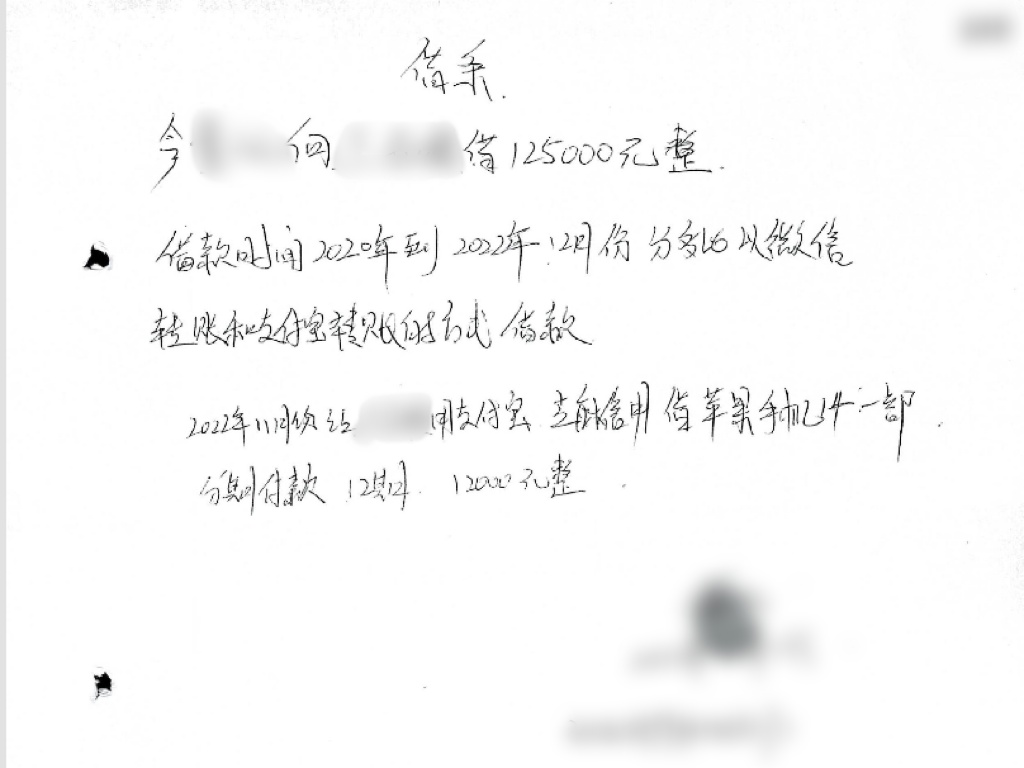 借条.
今 向 借125000元整.
借款时间2020年到2022年12月份分多次以微信
转账和支付宝转账的方式借款
2022年11月份给 用支付宝 信用 借苹果手机14一部.
分期付款 12期. 12000元整.